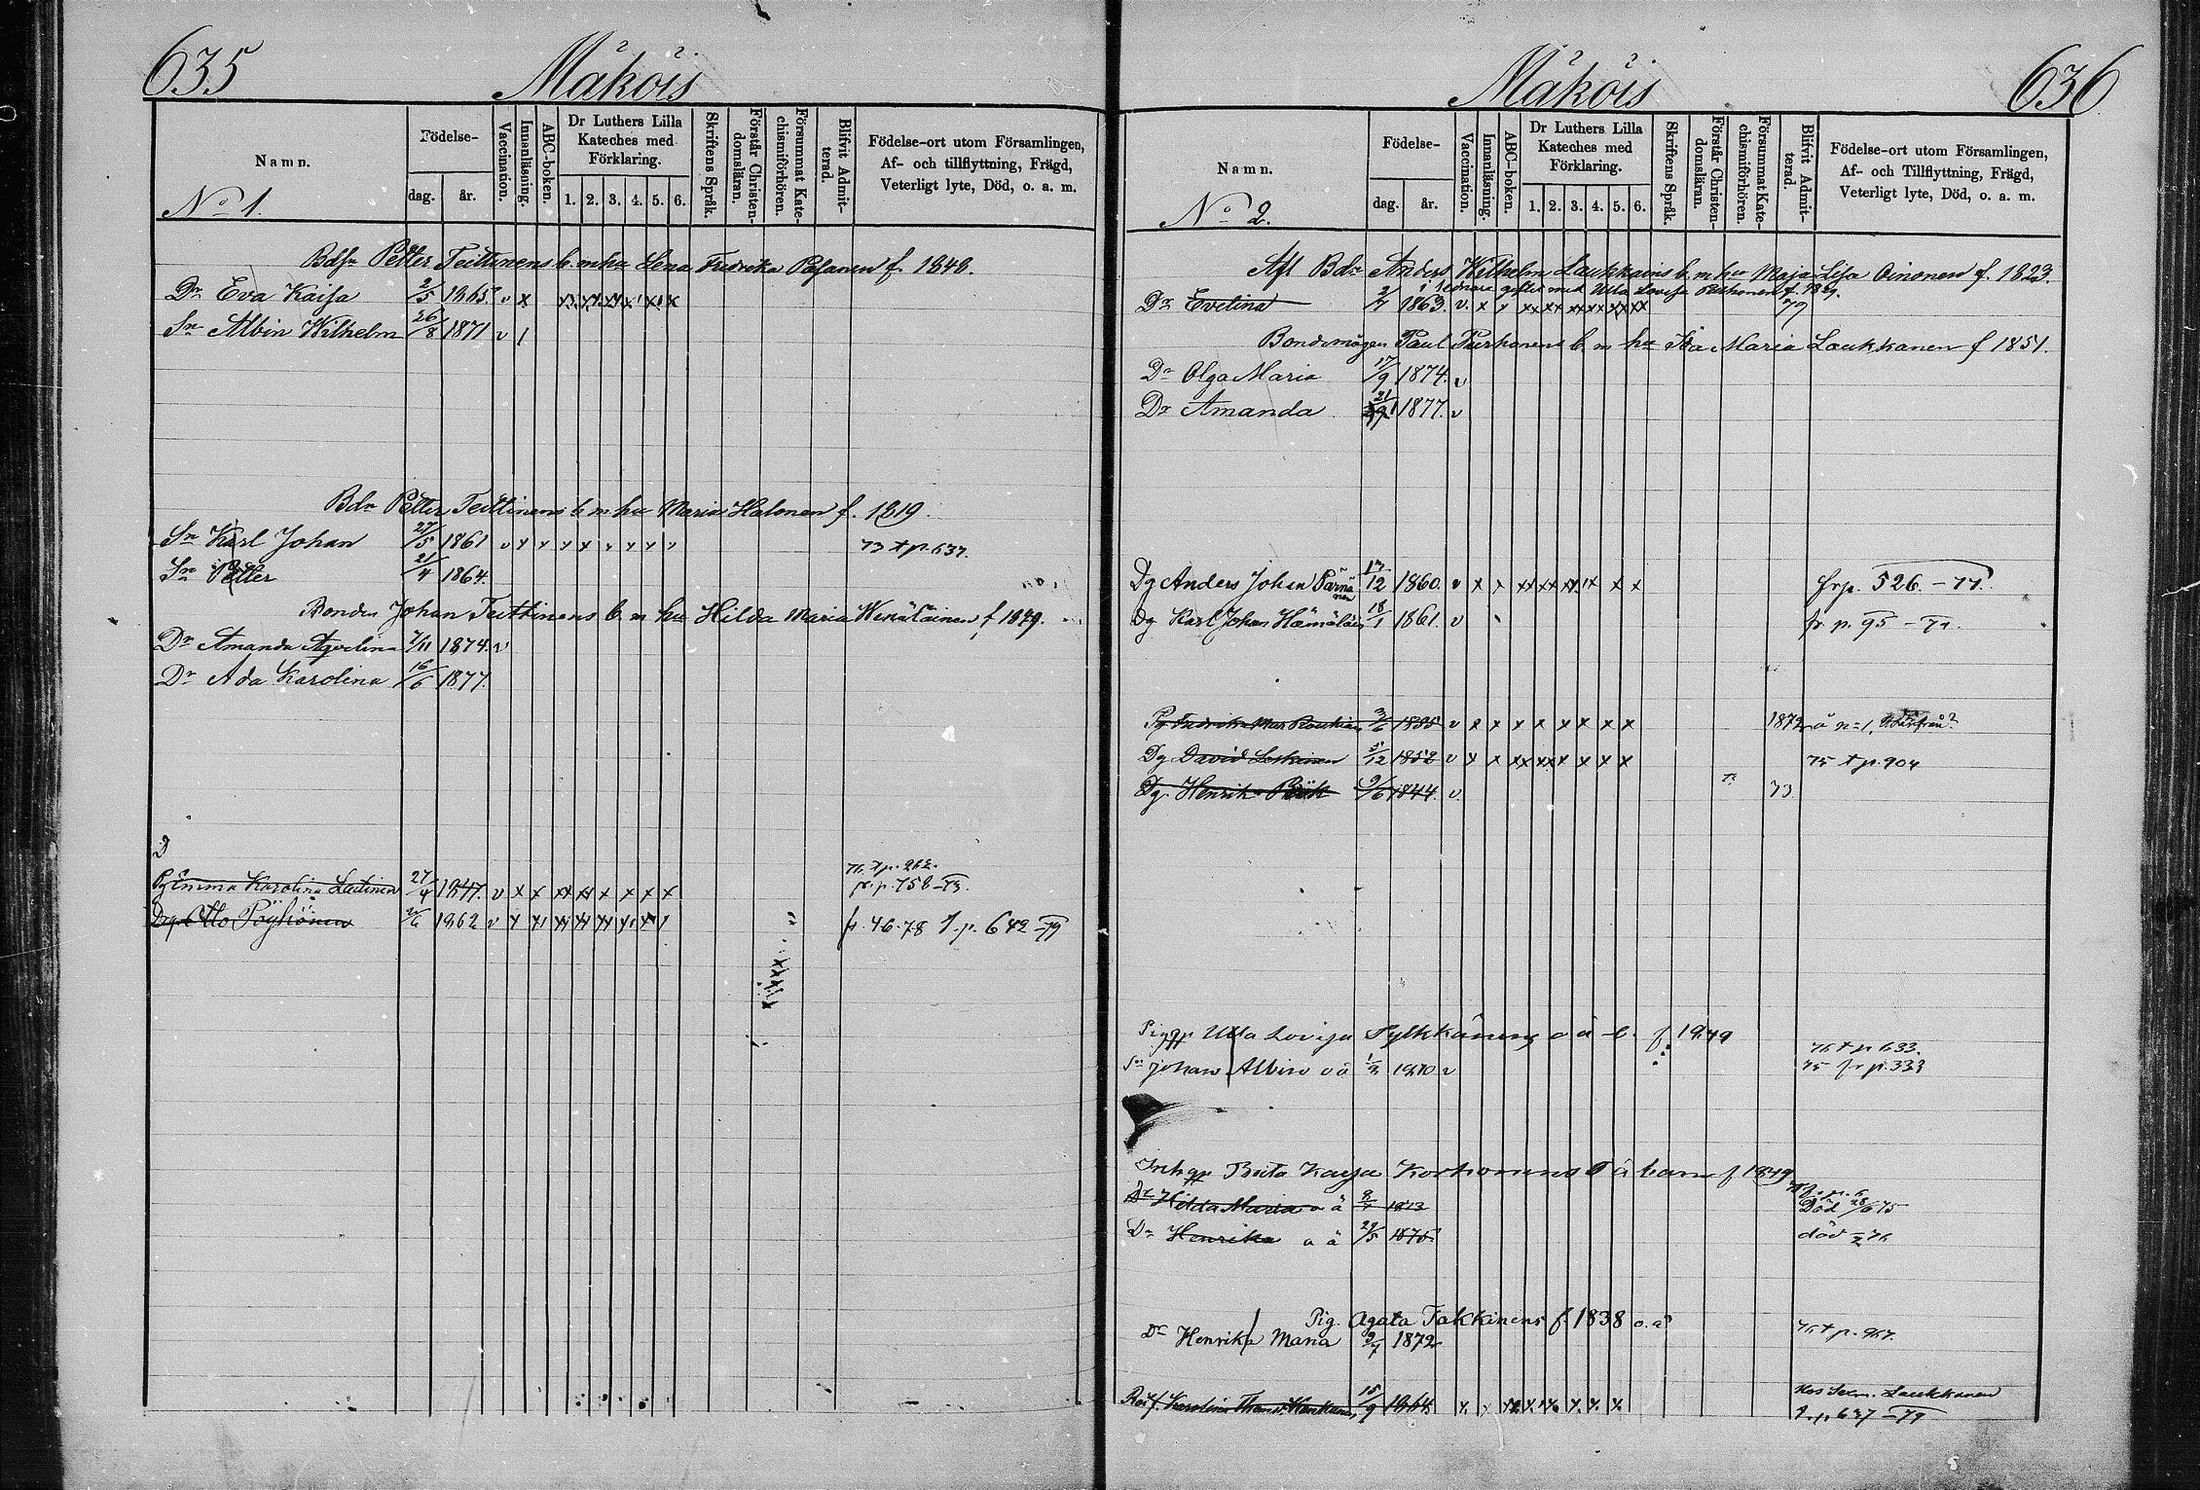 635
Mäkois
Namn.
Födelse-
dag.
år.
Vaccination.
Innanläsning.
ABC-boken.
Dr Luthers Lilla
Kateches med
Förklaring.
1. 2. 3. 4. 5. 6.
Skriftens Språk.
Förstår Christen-
domsläran.
Försummat Kate-
chismiförhören.
Blifvit Admit-
terad.
Födelse-ort utom Församlingen,
Af- och tillflyttning, Frägd,
Veterligt lyte, Död, o. a. m.
No 1.
Petter Teittinens b. m hu Lena Fredrika Pasanen f. 1848.
Dr Eva Kaisa 2/5 1865. v x
Sn Albin Wilhelm 26/8 1871 v 1
Bdn Petter Teittinens b m hu Maria Halonen f. 1819.
Sn Karl Johan 27/5 1861 73 t p. 637.
Sn Petter 21/4 1864.
Bonden Johan Teittinens b. m hu Hilda Maria f 1849.
Dr Amanda 7/11 1874. v
Dr Ada Karolina 16/6 1877.
D
76 t p. 962.
Pg Emma Karolina Lautinen 27/4 1847. v x x fr p. 758-73.
Otto Pöyhönen 1862 v fr. 46. 78 t. p. 642-79
636
Mäkois
Namn.
Födelse-
dag.
år.
Vaccination.
Innanläsning.
ABC-boken.
Dr Luthers Lilla
Kateches med
Förklaring.
1. 2. 3. 4. 5. 6.
Skriftens Språk.
Förstår Christen-
domsläran.
Försummat Kate-
chismiförhören.
Blifvit Admit-
terad.
Födelse-ort utom Församlingen,
Af- och Tillflyttning, Frägd,
Veterligt lyte, Död, o. a. m.
No 2.
Afl Bdn Anders Wilhelm Laukkains b. m hu Maja Lisa Oinonen f. 1823.
gifted med Ulla Lovisa f. 1829.
Dr Evelina 2/4 1863. v. x 79
Bondemågen Paul Purhonens b. m hu Ida Maria Laukkanen f 1851.
Dr Olga Maria 17/9 1874. v
Dr Amanda 21 1877. v
Dg Anders Johan Pärnä
nen 17/12 1860. v x x fr p. 526.-77.
Dg Karl Johan Hämäläin 18/1 1861 v fr p. 95-77.
3/6 1855 v x x x x x x x x 1872
Dg David Leskinen 5/12 1852 v 75 t p. 904
Dg. Henrik 9/6 1844. v. 73
Ulla Lovisa Pylkkänens o ä b. f 1849
76 t p 633.
Sn Johan Albin o ä 1870 v 75 fr p. 333
Brita Kaisa Korhonens o ä barn f 1849
Dr Hilda Maria o ä 1873 Död 28/6 75
Dr Henrika o ä 29/5 1875 död 76
Pig. Agata Takkinens f. 1838 o. ä
Dr Henrika Maria 9/7 1872 76 t p. 967.
Hos Laukkanen
Karolina 15/9 1864 t. p. 637-79